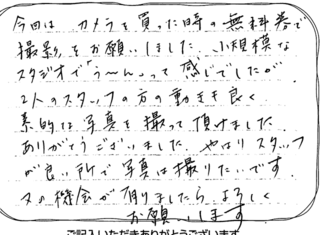 今回は カメラを買った時の無料券で
撮影をお願いしました。小規模な
スタジオで「う〜ん」って感じでしたが
2人のスタッフの方の動きも良く
素的な写真を撮って頂けました。
ありがとうございました。やはりスタッフ
が良い所で写真は撮りたいです。
又の機会が有りましたらよろしく
お願いします
ご記入いただきありがとうございます